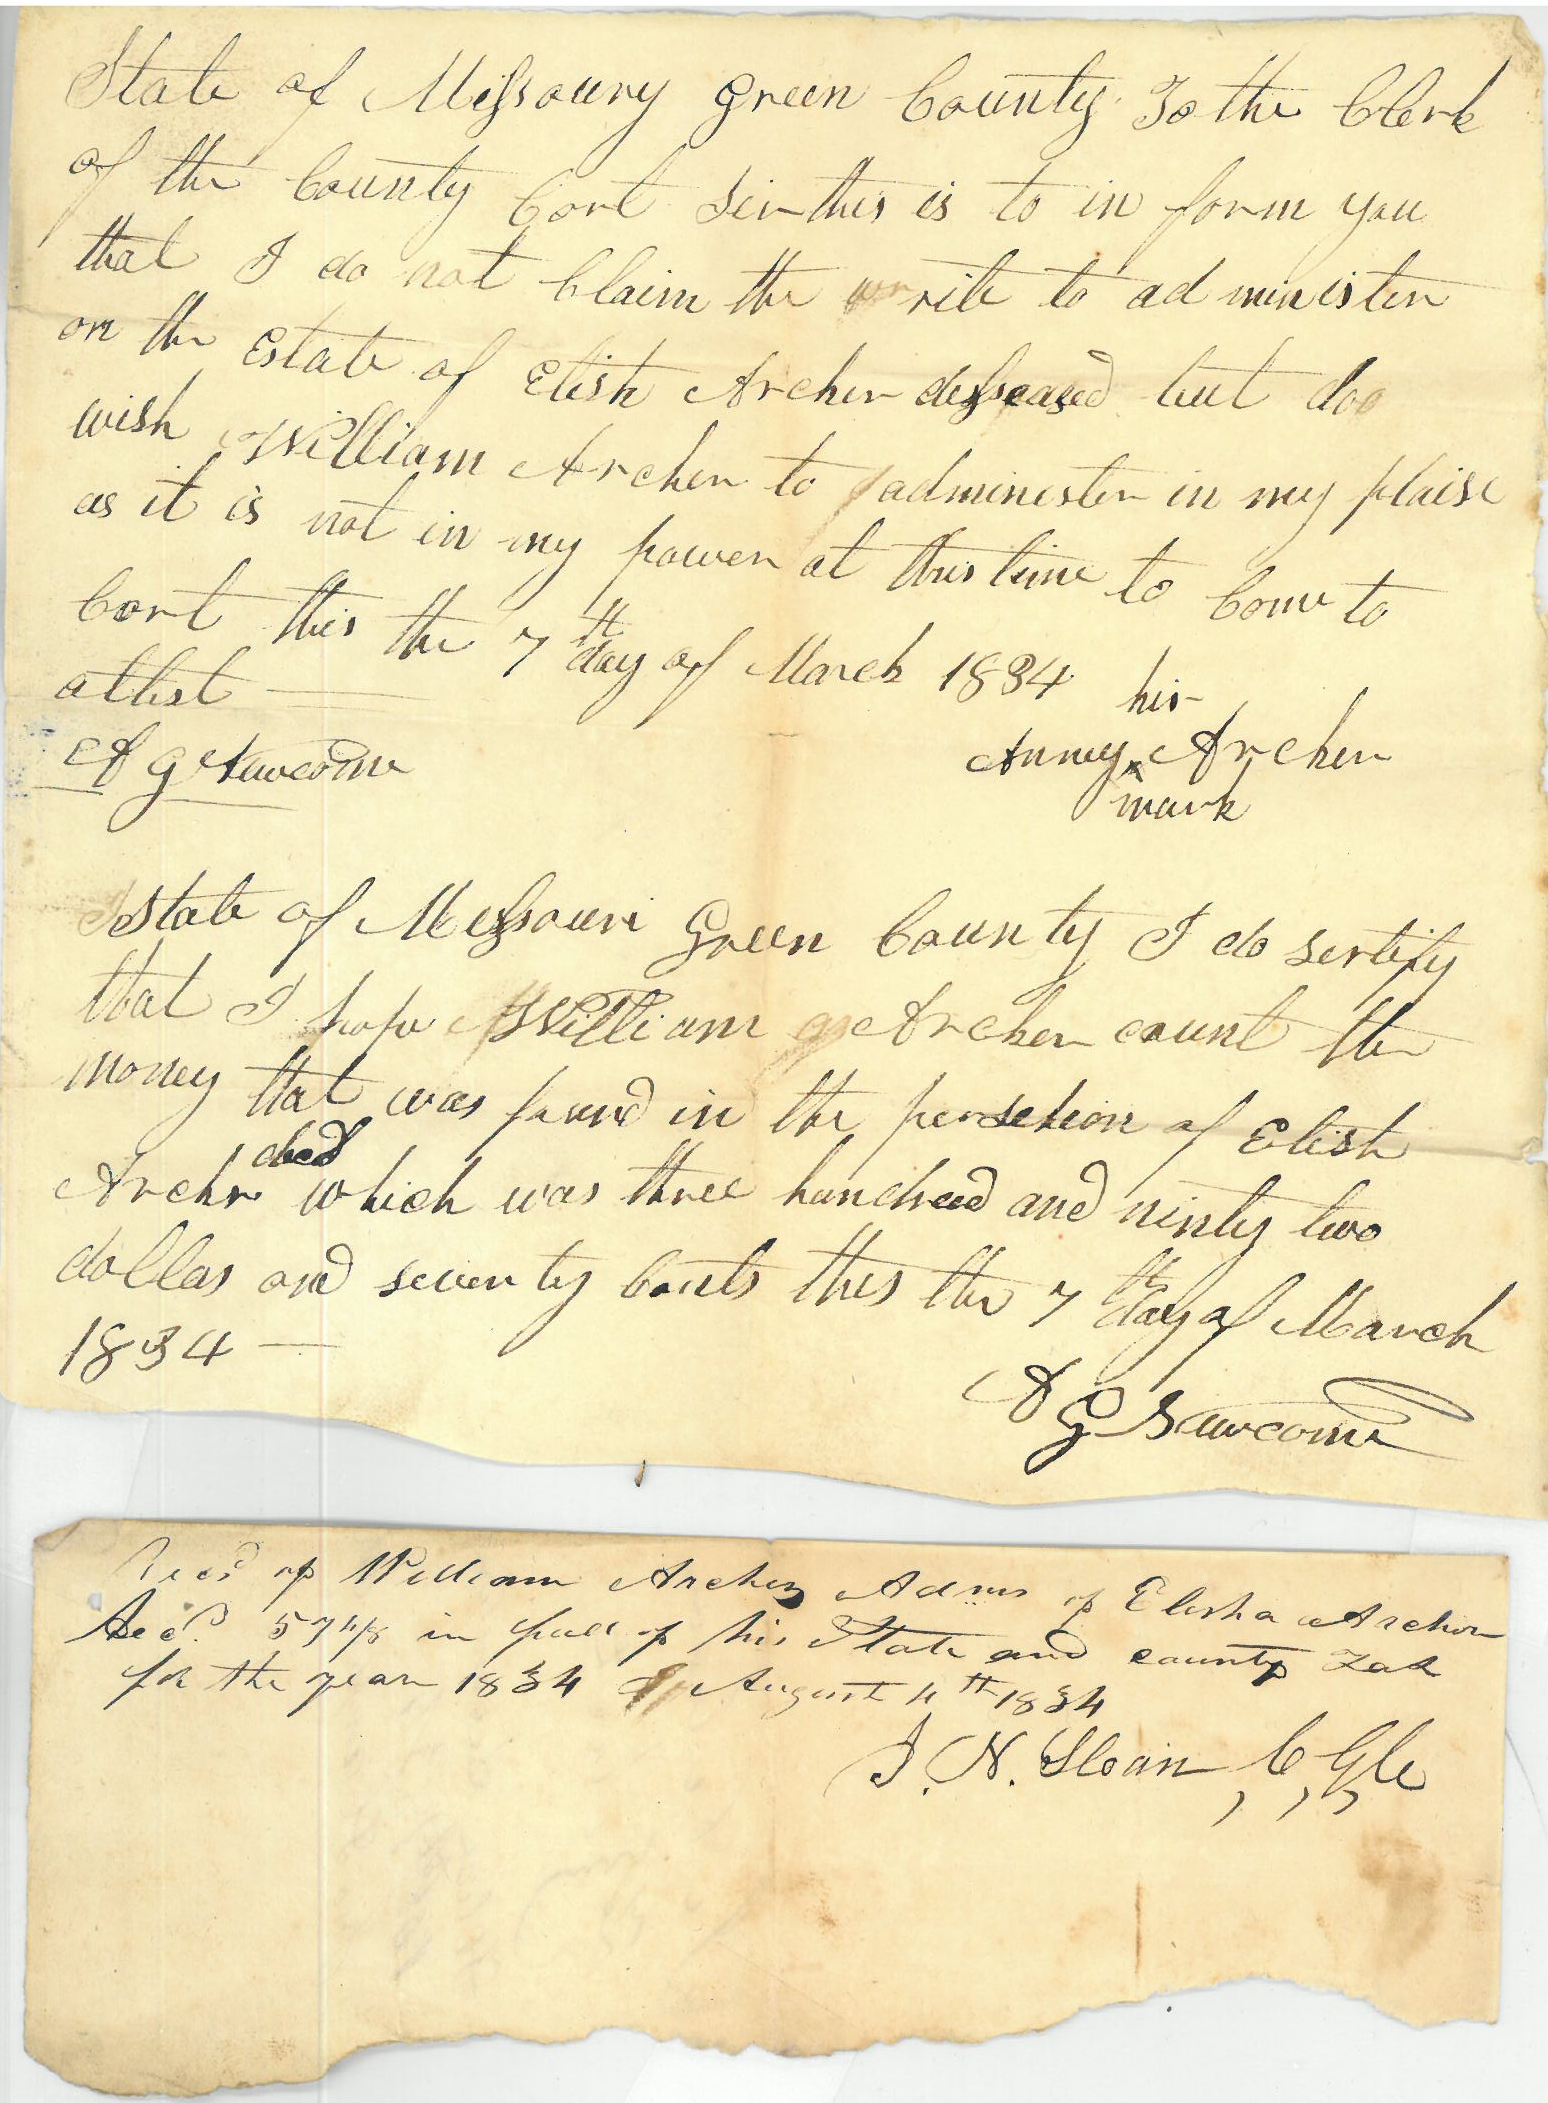 State of Missoury Green County To the Clerk
of the County Cort Sir this is to in form you
that I do not Claim the rite to ad minister
on the Estate of Elish Archer desseased but doo
wish William Archer to administer in my plaise
as it is not in my power at this time to Come to
Cort this the 7th day of March 1834
attest
his
A G
Anney x Archer
mark
State of Missouri Green County I do sertify
that I William Archer count the
money that was found in the of Elish
Archr decd which was three hundred and ninty two
dollas and seventy Cents this the 7th day of March
1834
A G
Recd of William Archer Admr of Elisha Archer
Decd. in full of his State and county Tax
for the year 1834 August 4th 1834
J. N. Sloan, C, G, C